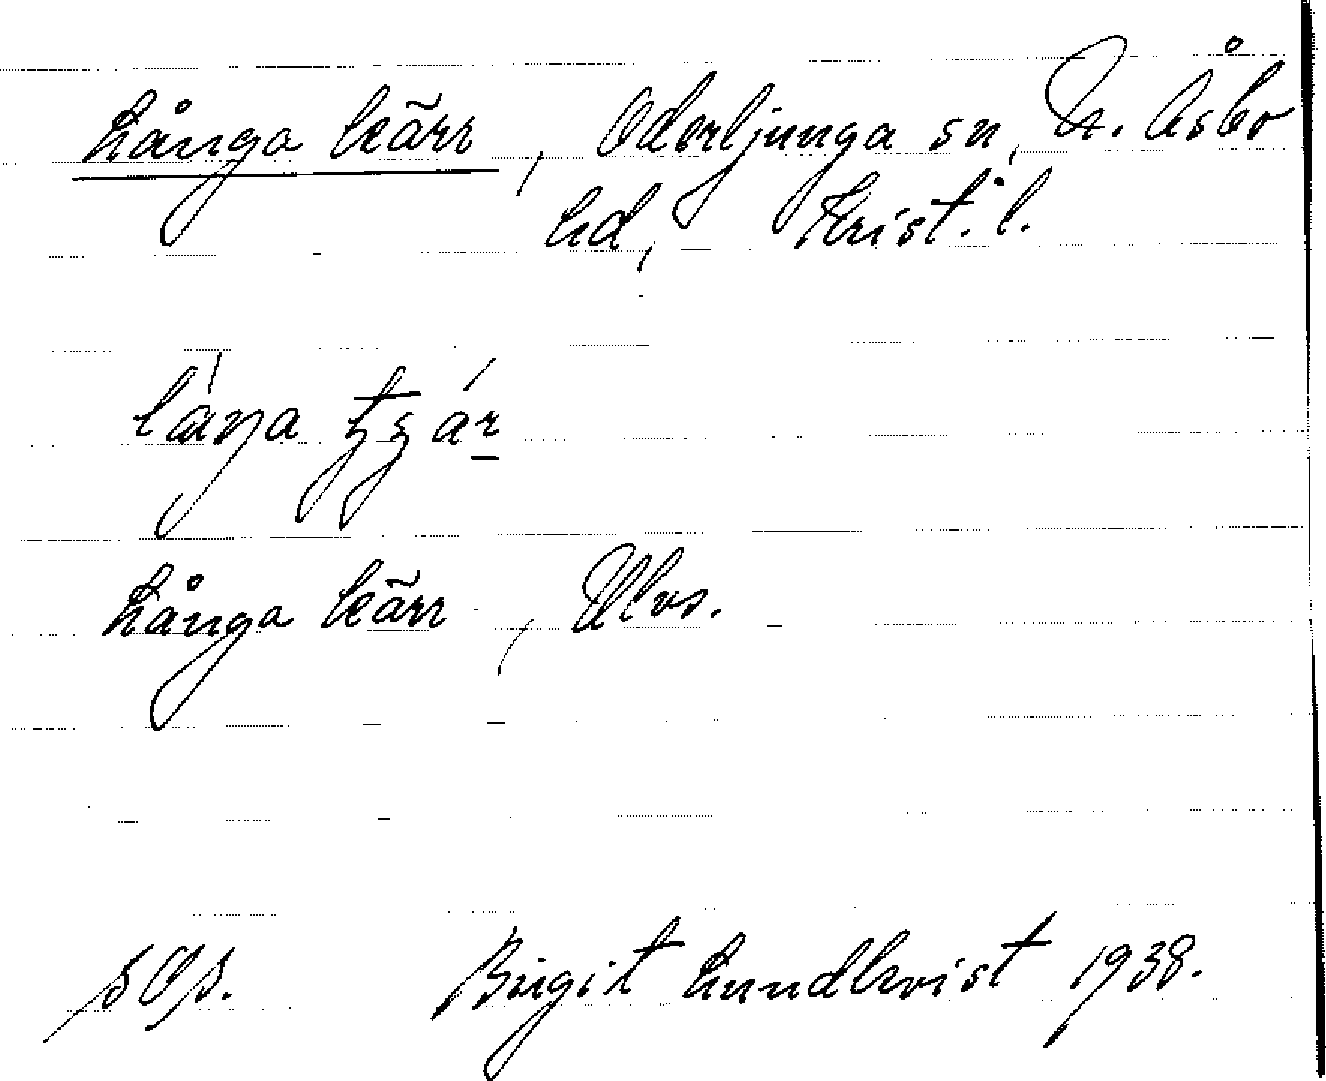 Långa kärr, Oderljunga sn, N. Åsbo
hd, Krist. l.
Långa kärr, Ulvs.
Birgit Lundkvist 1938.